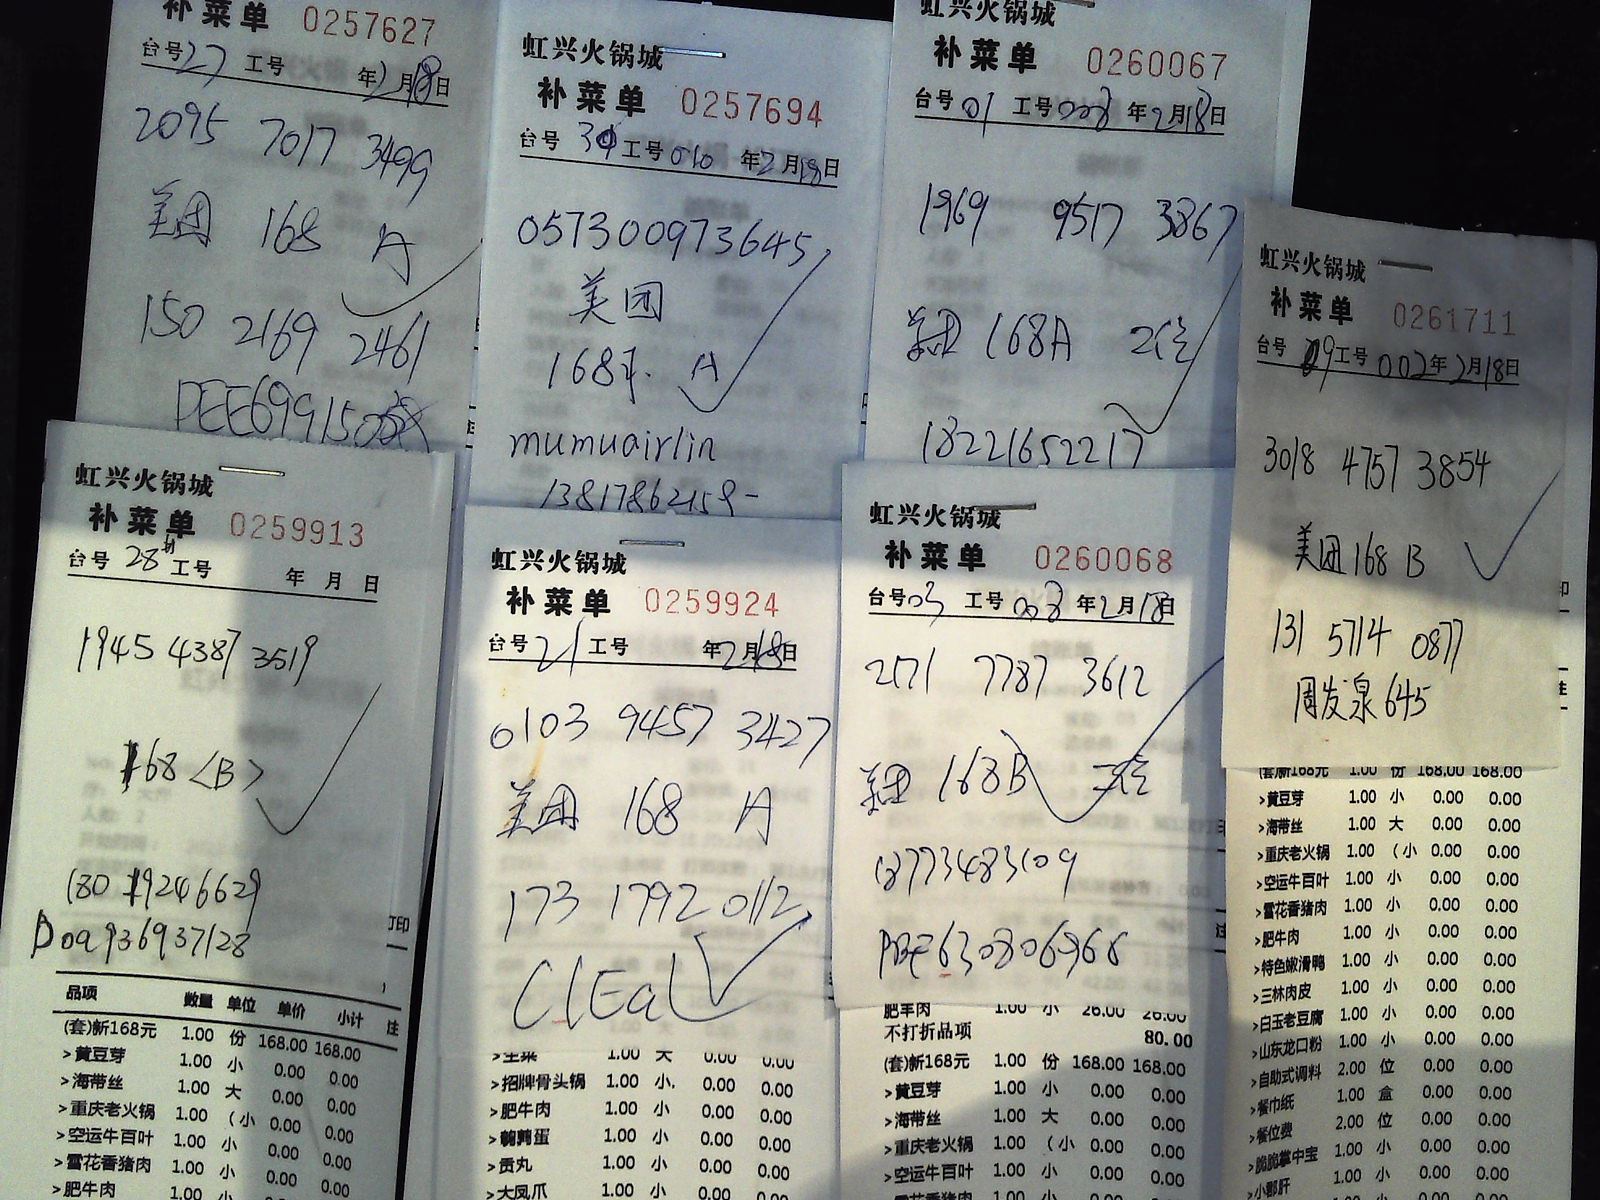 补菜单 0257627
台号27 工号 年2月18日
2095 7017 3499
美团 168 A
150 2169 2461
虹兴火锅城
补菜单 0257694
台号30工号010 年2月18日
057300973645
美团
168 A
mumuairlin
13817862159
虹兴火锅城
补菜单 0260067
台号01 工号008 年2月18日
1969 9517 3867
美团 168A 2位
18221652217
虹兴火锅城
补菜单 0261711
台号09工号002年2月18日
3018 4757 3854
美团168 B
131 5714 0877
周发泉645
(套)新168元 1.00 份 168.00 168.00
>黄豆芽 1.00 小 0.00 0.00
>海带丝 1.00 大 0.00 0.00
>重庆老火锅 1.00 (小 0.00 0.00
>空运牛百叶 1.00 小 0.00 0.00
>雪花香猪肉 1.00 小 0.00 0.00
>肥牛肉 1.00 小 0.00 0.00
>特色嫩滑鸭 1.00 小 0.00 0.00
>三林肉皮 1.00 小 0.00 0.00
>白玉老豆腐 1.00 小 0.00 0.00
>山东龙口粉 1.00 小 0.00 0.00
>自助式调料 2.00 位 0.00 0.00
>餐巾纸 1.00 盒 0.00 0.00
>餐位费 2.00 位 0.00 0.00
>脆脆掌中宝 1.00 小 0.00 0.00
>小郡肝 1.00 小 0.00 0.00
虹兴火锅城
补菜单 0259913
台号 28 工号 年 月 日
1945 4387 3519
168 <B>
180 19246629
D0a936937128
打印
品项 数量 单位 单价 小计 注
(套)新168元 1.00 份 168.00 168.00
>黄豆芽 1.00 小 0.00 0.00
>海带丝 1.00 大 0.00 0.00
>重庆老火锅 1.00 (小 0.00 0.00
>空运牛百叶 1.00 小 0.00 0.00
>雪花香猪肉 1.00 小 0.00 0.00
>肥牛肉 1.00 小 0.00 0.00
虹兴火锅城
补菜单 0259924
台号21工号 年2月18日
0103 9457 3427
美团 168 A
173 1792 0112
>生菜 1.00 大 0.00 0.00
>招牌骨头锅 1.00 小 0.00 0.00
>肥牛肉 1.00 小 0.00 0.00
>鹌鹑蛋 1.00 小 0.00 0.00
>贡丸 1.00 小 0.00 0.00
>大凤爪 1.00 小 0.00 0.00
虹兴火锅城
补菜单 0260068
台号03 工号008 年2月18日
2171 7787 3612
美团 168B 二位
18773483109
肥羊肉 1.00 小 26.00 26.00
不打折品项 80.00
(套)新168元 1.00 份 168.00 168.00
>黄豆芽 1.00 小 0.00 0.00
>海带丝 1.00 大 0.00 0.00
>重庆老火锅 1.00 (小 0.00 0.00
>空运牛百叶 1.00 小 0.00 0.00
>雪花香猪肉 1.00 小 0.00 0.00